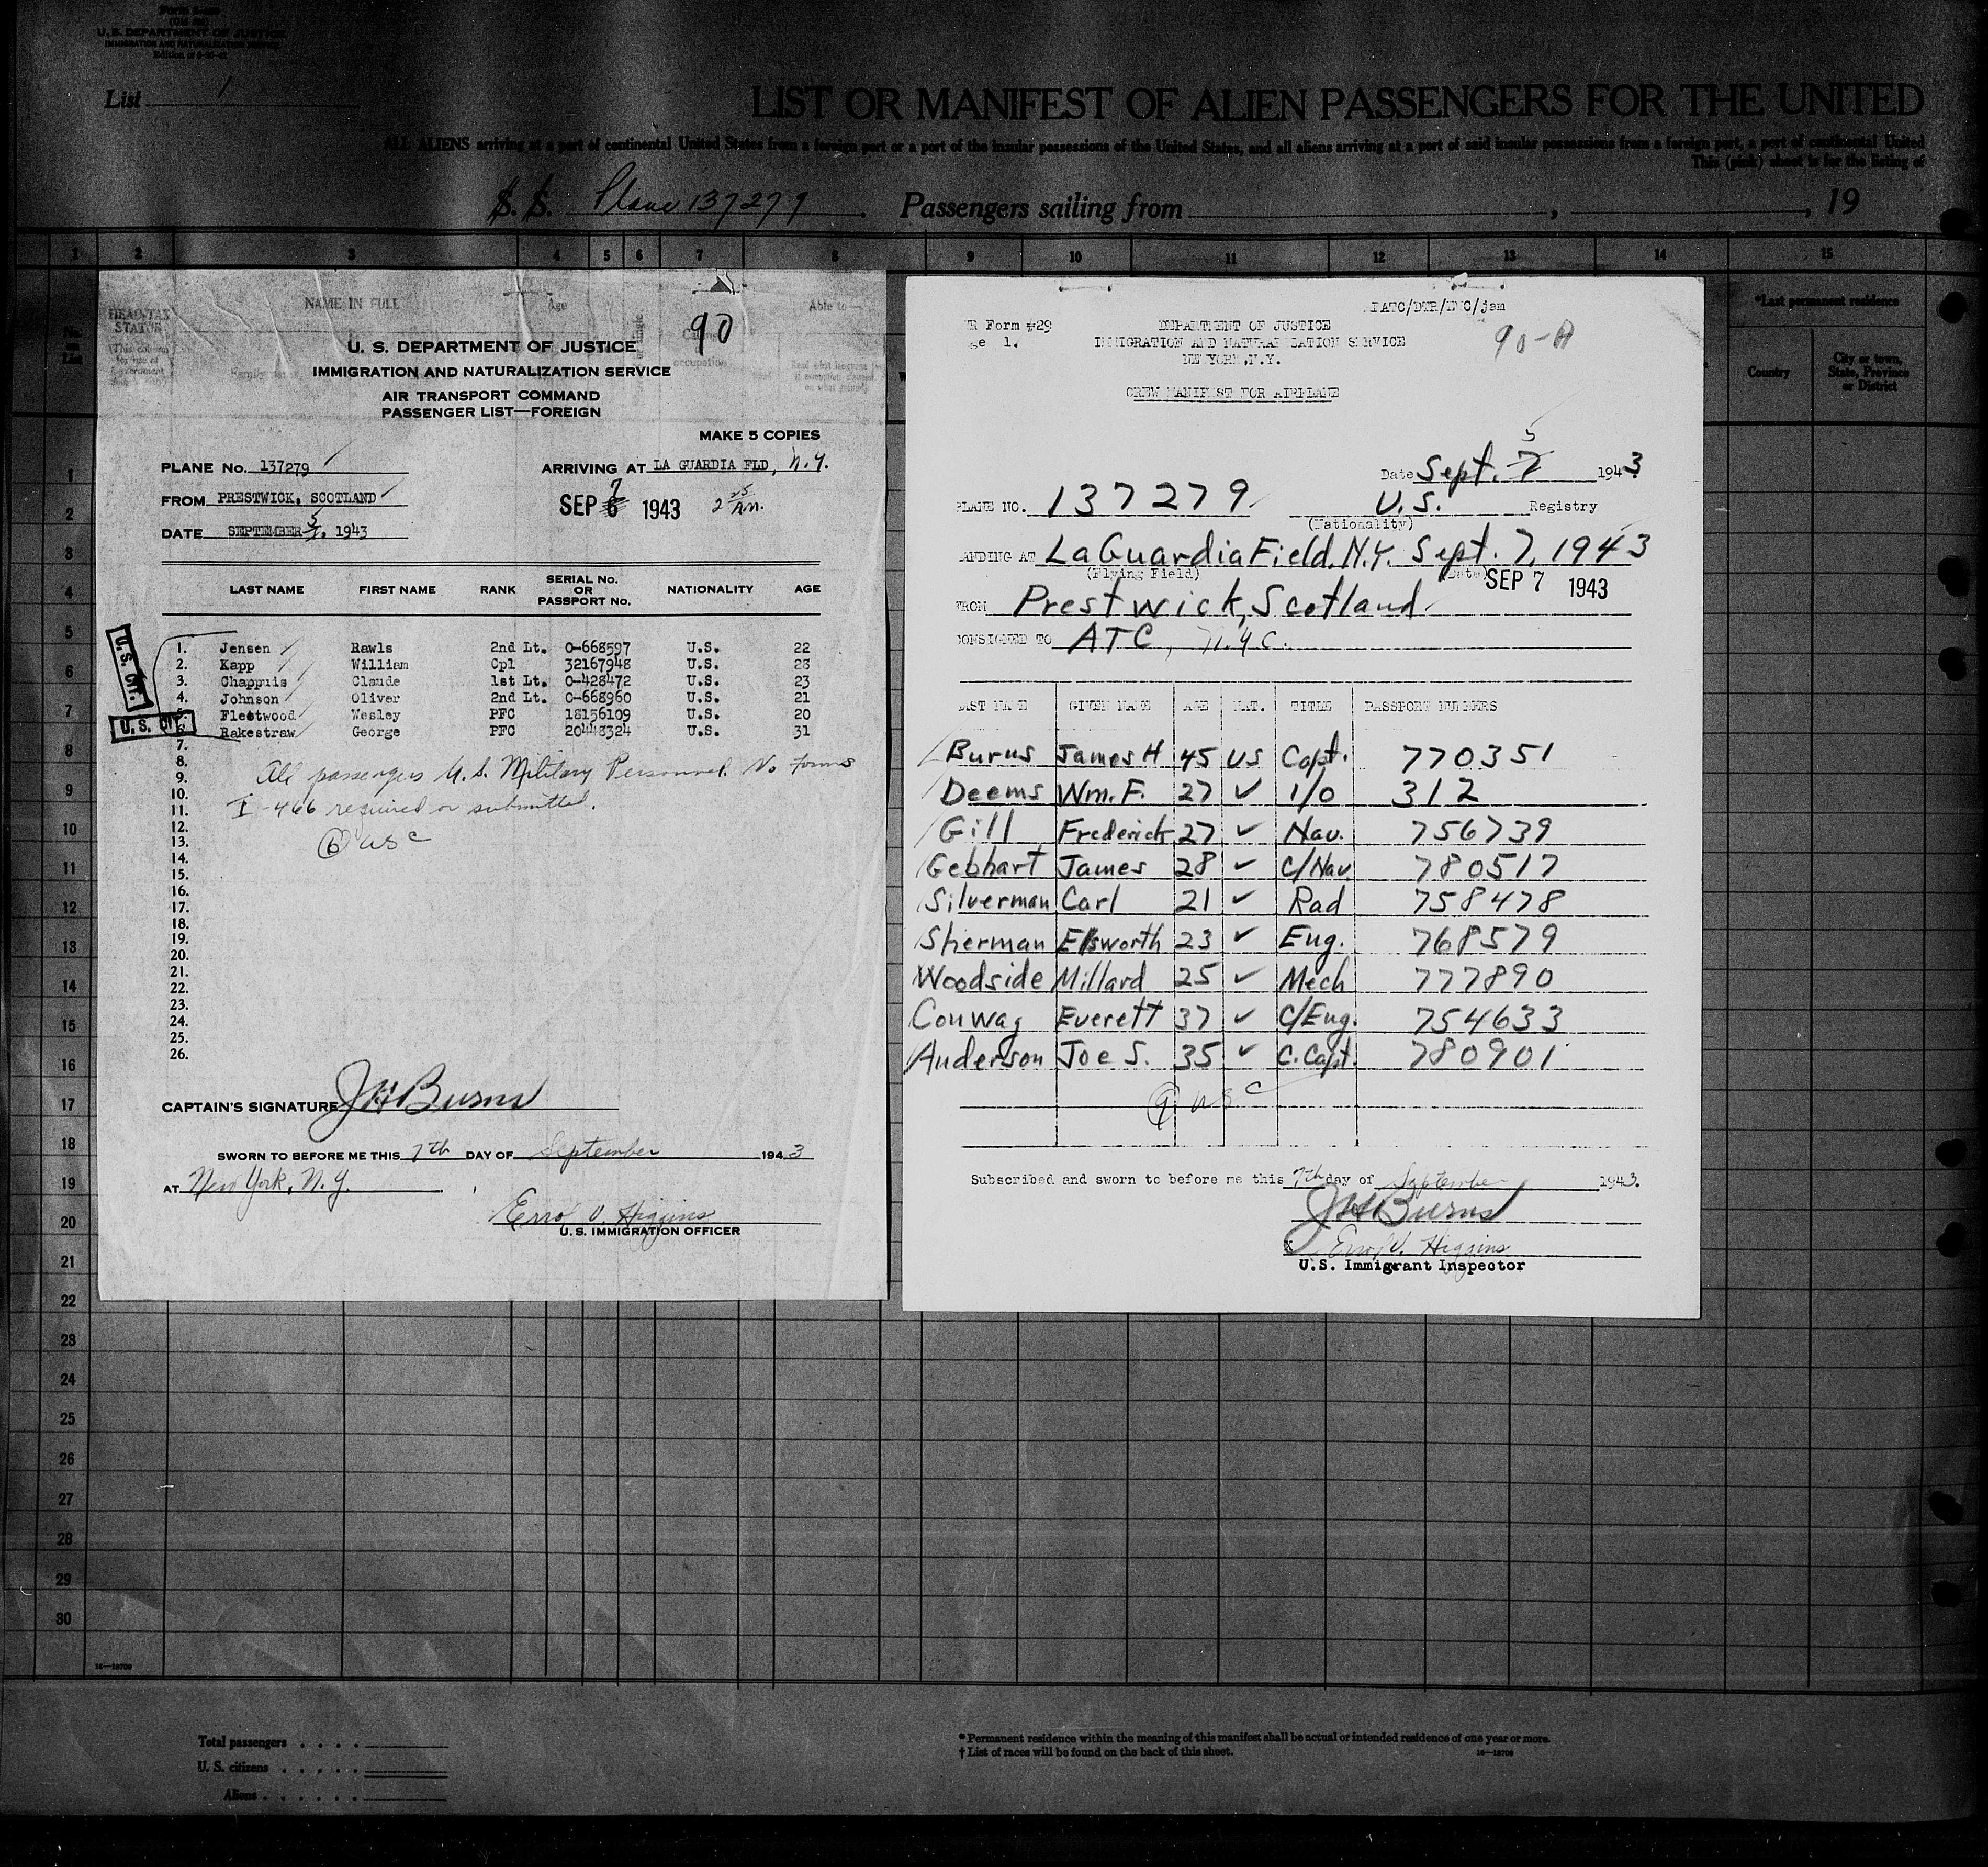 U. S. DEPARTMENT OF JUSTICE
IMMIGRATION AND NATURALIZATION SERVICE
List 1
LIST OR MANIFEST OF ALIEN PASSENGERS FOR THE UNITED
ALL ALIENS arriving at a port of continental United States from a foreign port or a port of the insular possessions of the United States, and all aliens arriving at a port of said insular possessions from a foreign port, a port of continental United
This (pink) sheet is for the listing of
S. S. Plane 137279. Passengers sailing from , , 19
1 2 3 4 5 6 7 8 9 10 11 12 13 14 15
HEAD-TAX STATUS
NAME IN FULL
Age
Able to—
*Last permanent residence
No. on List
Country
City or town, State, Province or District
90
U. S. DEPARTMENT OF JUSTICE
IMMIGRATION AND NATURALIZATION SERVICE
AIR TRANSPORT COMMAND
PASSENGER LIST—FOREIGN
MAKE 5 COPIES
PLANE No. 137279
ARRIVING AT LA GUARDIA FLD, N.Y.
FROM PRESTWICK, SCOTLAND
SEP 6 7 1943 2 25 AM.
DATE SEPTEMBER 5, 1943
LAST NAME FIRST NAME RANK SERIAL No. OR PASSPORT No. NATIONALITY AGE
U.S. CIT.
U.S. CIT.
1. Jensen Rawls 2nd Lt. 0-668597 U.S. 22
2. Kapp William Cpl 32167948 U.S. 28
3. Chappuis Claude 1st Lt. 0-428472 U.S. 23
4. Johnson Oliver 2nd Lt. 0-668960 U.S. 21
5 Fleetwood Wesley PFC 18156109 U.S. 20
6. Rakestraw George PFC 20448324 U.S. 31
7.
8.
All passengers U.S. Military Personnel. No Forms
9.
10.
I-466 required or submitted.
11.
12.
13.
6 USC
14.
15.
16.
17.
18.
19.
20.
21.
22.
23.
24.
25.
26.
CAPTAIN'S SIGNATURE JH Burns
SWORN TO BEFORE ME THIS 7th DAY OF September 1943
AT New York, N.Y.
Errol V. Higgins
U. S. IMMIGRATION OFFICER
ATC/DWR/ENC/jam
R Form #29
DEPARTMENT OF JUSTICE
90-A
ge 1.
IMMIGRATION AND NATURALIZATION SERVICE
NEW YORK, N.Y.
CREW MANIFEST FOR AIRPLANE
Date Sept. 7 5 1943
PLANE NO. 137279 U.S. Registry
(Nationality)
ANDING AT La Guardia Field, N.Y. Sept. 7, 1943
(Flying Field) (Date) SEP 7 1943
FROM Prestwick, Scotland
CONSIGNED TO ATC, N.Y.C.
LAST NAME GIVEN NAME AGE NAT. TITLE PASSPORT NUMBERS
Burns James H 45 US Capt. 770351
Deems Wm. F. 27 ✓ 1/O 312
Gill Frederick 27 ✓ Nav. 756739
Gebhart James 28 ✓ C/Nav 780517
Silverman Carl 21 ✓ Rad 758478
Sherman Ellsworth 23 ✓ Eng. 768579
Woodside Millard 25 ✓ Mech 777890
Conway Everett 37 ✓ C/Eng. 754633
Anderson Joe S. 35 ✓ C. Capt. 780901
9 USC
Subscribed and sworn to before me this 7th day of September 1943.
JH Burns
Errol V. Higgins
U.S. Immigrant Inspector
1
2
3
4
5
6
7
8
9
10
11
12
13
14
15
16
17
18
19
20
21
22
23
24
25
26
27
28
29
30
16—18709
Total passengers . . . .
U. S. citizens . . . . .
Aliens . . . . . .
* Permanent residence within the meaning of this manifest shall be actual or intended residence of one year or more.
† List of races will be found on the back of this sheet.
16—18709